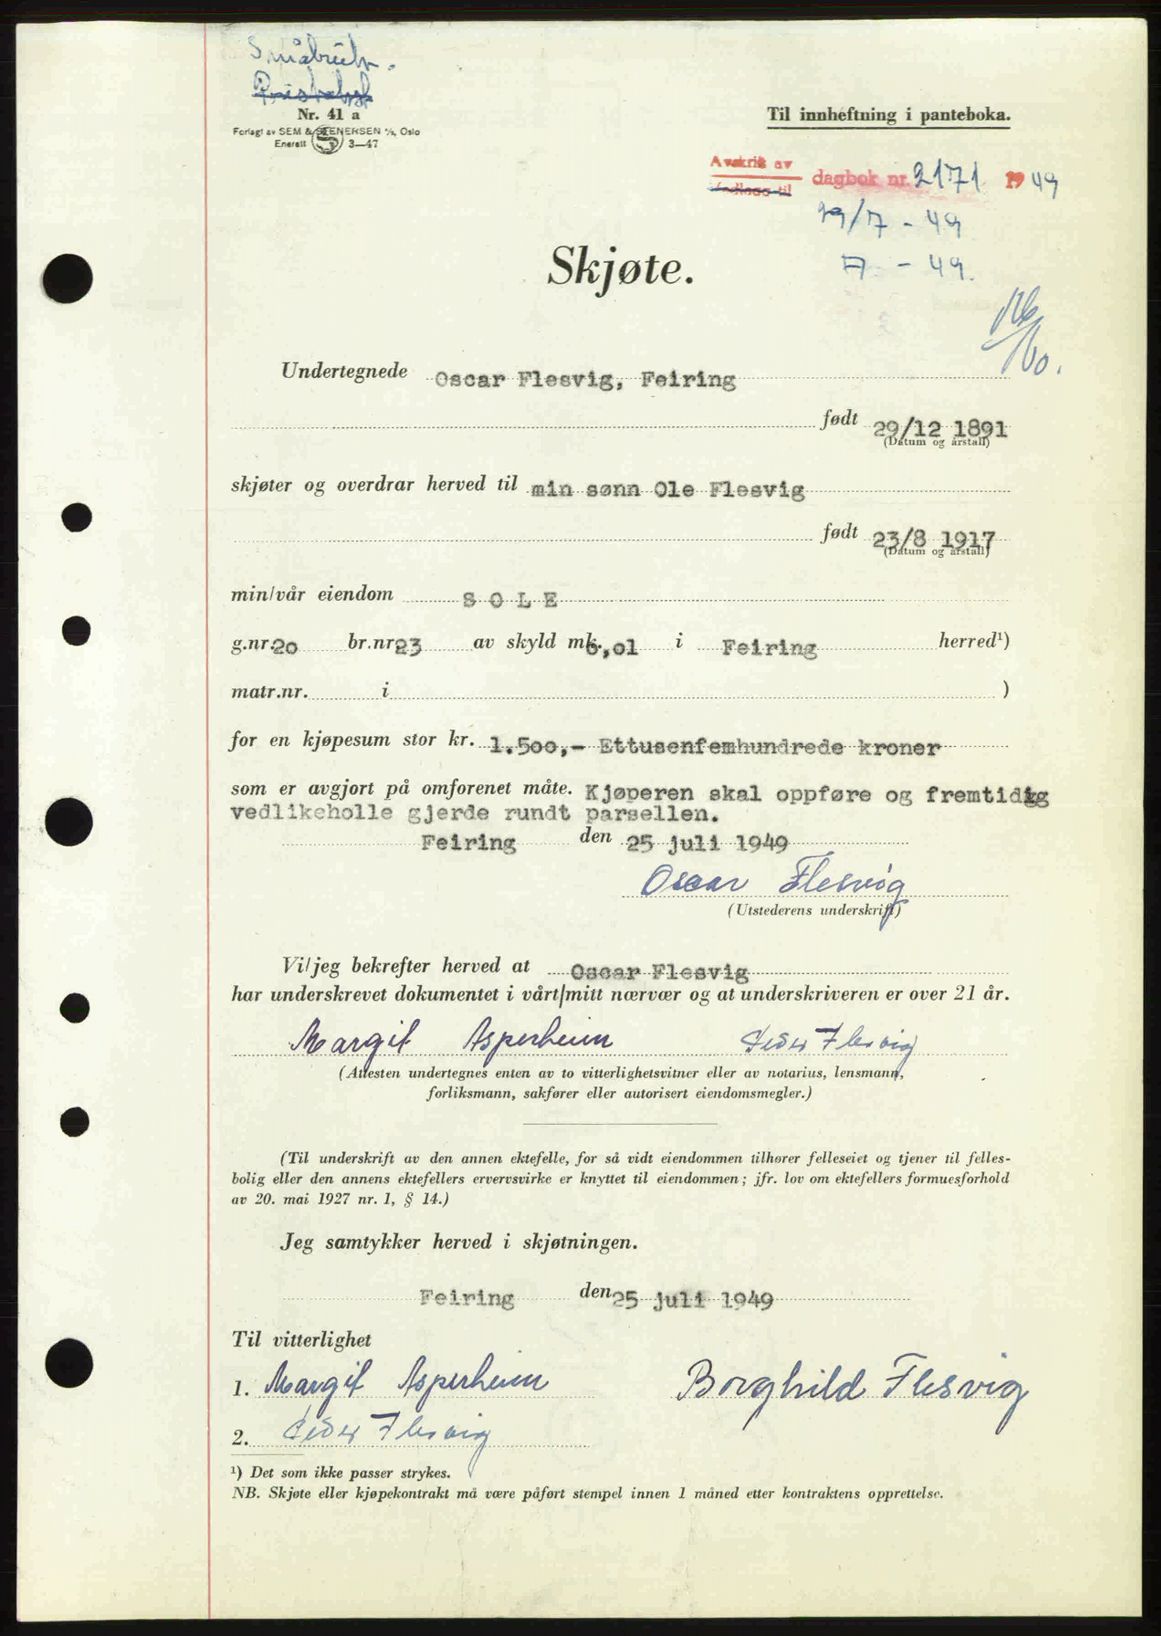 Småbruk.
Nr. 41 a
Forlagt av SEM & STENERSEN A/S, Oslo
Enerett 3—47
Til innheftning i panteboka.
Avskrift av
Vedlegg til
dagbok nr. 2171 1949
29/7 - 49
7 - 49.
Skjøte.
Undertegnede Oscar Flesvig, Feiring
født 29/12 1891
(Datum og årstall)
skjøter og overdrar herved til min sønn Ole Flesvig
født 23/8 1917
(Datum og årstall)
min/vår eiendom SOLE
g.nr. 20 br.nr 23 av skyld mk. 0,01 i Feiring herred¹)
matr.nr. i )
for en kjøpesum stor kr. 1.500,- Ettusenfemhundrede kroner
som er avgjort på omforenet måte. Kjøperen skal oppføre og fremtidig
vedlikeholle gjerde rundt parsellen.
Feiring den 25 juli 1949
Oscar Flesvig
(Utstederens underskrift)
Vi/jeg bekrefter herved at Oscar Flesvig
har underskrevet dokumentet i vårt/mitt nærvær og at underskriveren er over 21 år.
Margit Asperheim Peder Flesvig
(Attesten undertegnes enten av to vitterlighetsvitner eller av notarius, lensmann,
forliksmann, sakfører eller autorisert eiendomsmegler.)
(Til underskrift av den annen ektefelle, for så vidt eiendommen tilhører felleseiet og tjener til felles-
bolig eller den annens ektefellers ervervsvirke er knyttet til eiendommen; jfr. lov om ektefellers formuesforhold
av 20. mai 1927 nr. 1, § 14.)
Jeg samtykker herved i skjøtningen.
Feiring den 25 juli 1949
Til vitterlighet
1. Margit Asperheim Borghild Flesvig
2. Peder Flesvig
¹) Det som ikke passer strykes.
NB. Skjøte eller kjøpekontrakt må være påført stempel innen 1 måned etter kontraktens opprettelse.